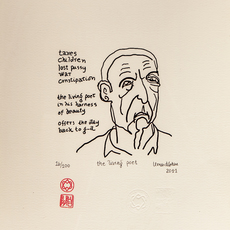 taxes
children
lost pussy
war
constipation
the living poet
in his harness
of beauty
offers the day
back to g-d
the living poet
2007